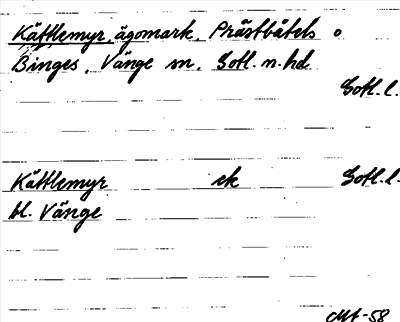 Kättlemyr, ägomark, Prästbåtels o
Binges, Vänge sn, Gotl. n. hd
Gotl. l.
Kättlemyr ek Gotl. l.
bl. Vänge
Mt-58